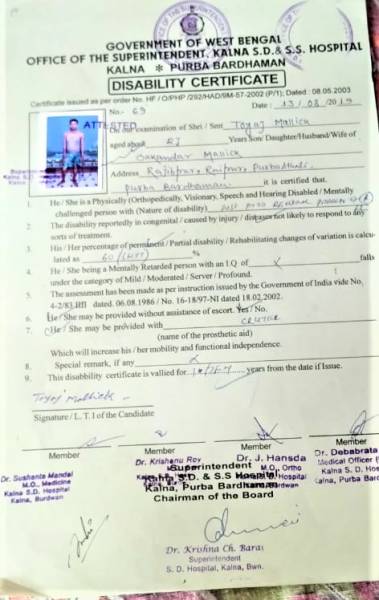 GOVERNMENT OF WEST BENGAL
OFFICE OF THE SUPERINTENDENT, KALNA S.D. & S.S. HOSPITAL
KALNA * PURBA BARDHAMAN
DISABILITY CERTIFICATE
Certificate issued as per order No. HF / O/PHP /292/HAD/9M-57-2002 (P/1); Dated : 08.05.2003
No.- 69 Date : 13/08/2019
ATTESTED
On our examination of Shri / Smt Toyaj Mallick
aged about Years Son/ Daughter/Husband/Wife of
Mallick
Address
Purba Bardhaman it is certified that.
1. He / She is a Physically (Orthopedically, Visionary, Speech and Hearing Disabled / Mentally
challenged person with (Nature of disability)
2. The disability reportedly in congenital / caused by injury / diseases not likely to respond to any
sorts of treatment.
3. His / Her percentage of permanent / Partial disability / Rehabilitating changes of variation is calcu-
lated as 60 %
4. He / She being a Mentally Retarded person with an I.Q of x falls
under the category of Mild / Moderated / Server / Profound.
5. The assessment has been made as per instruction issued by the Government of India vide No
4-2/83.IIII dated. 06.08.1986 / No. 16-18/97-NI dated 18.02.2002.
6. He / She may be provided without assistance of escort. Yes / No.
7. He / She may be provided with
(name of the prosthetic aid)
Which will increase his / her mobility and functional independence.
8. Special remark, if any x
9. This disability certificate is vallied for years from the date if Issue.
Signature / L. T. I of the Candidate
Member Member Member Member
Dr. Sushanta Mandal
M.O., Medicine
Kalna S.D. Hospital
Kalna, Burdwan
Dr. Krishanu Roy
Dr. J. Hansda
M.O., Ortho
Dr. Debabrata
Medical Officer
Kalna S. D. Hos
Superintendent
Kalna, S.D. & S.S Hospital
Kalna, Purba Bardhaman
Chairman of the Board
Dr. Krishna Ch. Barai
Superintendent
S. D. Hospital, Kalna, Bwn.